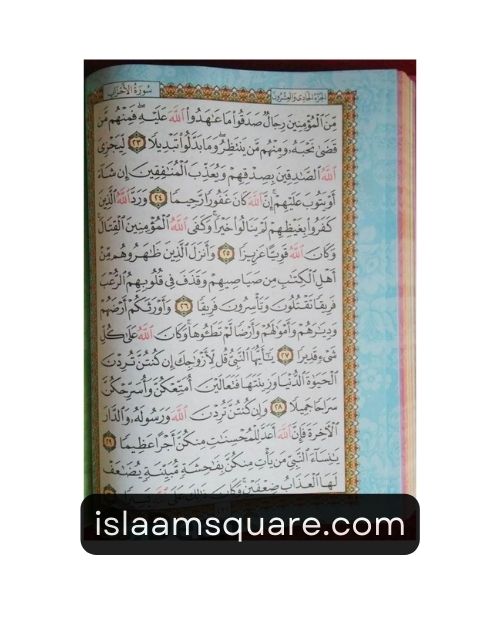 سُورَةُ الأَحْزَابِ
الجُزْءُ الحَادِى وَالعِشْرُونَ
مِّنَ ٱلْمُؤْمِنِينَ رِجَالٌ صَدَقُوا۟ مَا عَـٰهَدُوا۟ ٱللَّهَ عَلَيْهِ ۖ فَمِنْهُم مَّن
قَضَىٰ نَحْبَهُۥ وَمِنْهُم مَّن يَنتَظِرُ ۖ وَمَا بَدَّلُوا۟ تَبْدِيلًا ٢٣ لِّيَجْزِىَ
ٱللَّهُ ٱلصَّـٰدِقِينَ بِصِدْقِهِمْ وَيُعَذِّبَ ٱلْمُنَـٰفِقِينَ إِن شَآءَ
أَوْ يَتُوبَ عَلَيْهِمْ ۚ إِنَّ ٱللَّهَ كَانَ غَفُورًا رَّحِيمًا ٢٤ وَرَدَّ ٱللَّهُ ٱلَّذِينَ
كَفَرُوا۟ بِغَيْظِهِمْ لَمْ يَنَالُوا۟ خَيْرًا ۚ وَكَفَى ٱللَّهُ ٱلْمُؤْمِنِينَ ٱلْقِتَالَ ۚ
وَكَانَ ٱللَّهُ قَوِيًّا عَزِيزًا ٢٥ وَأَنزَلَ ٱلَّذِينَ ظَـٰهَرُوهُم مِّنْ
أَهْلِ ٱلْكِتَـٰبِ مِن صَيَاصِيهِمْ وَقَذَفَ فِى قُلُوبِهِمُ ٱلرُّعْبَ
فَرِيقًا تَقْتُلُونَ وَتَأْسِرُونَ فَرِيقًا ٢٦ وَأَوْرَثَكُمْ أَرْضَهُمْ
وَدِيَـٰرَهُمْ وَأَمْوَٰلَهُمْ وَأَرْضًا لَّمْ تَطَـُٔوهَا ۚ وَكَانَ ٱللَّهُ عَلَىٰ كُلِّ
شَىْءٍ قَدِيرًا ٢٧ يَـٰٓأَيُّهَا ٱلنَّبِىُّ قُل لِّأَزْوَٰجِكَ إِن كُنتُنَّ تُرِدْنَ
ٱلْحَيَوٰةَ ٱلدُّنْيَا وَزِينَتَهَا فَتَعَالَيْنَ أُمَتِّعْكُنَّ وَأُسَرِّحْكُنَّ
سَرَاحًا جَمِيلًا ٢٨ وَإِن كُنتُنَّ تُرِدْنَ ٱللَّهَ وَرَسُولَهُۥ وَٱلدَّارَ
ٱلْـَٔاخِرَةَ فَإِنَّ ٱللَّهَ أَعَدَّ لِلْمُحْسِنَـٰتِ مِنكُنَّ أَجْرًا عَظِيمًا ٢٩
يَـٰنِسَآءَ ٱلنَّبِىِّ مَن يَأْتِ مِنكُنَّ بِفَـٰحِشَةٍ مُّبَيِّنَةٍ يُضَـٰعَفْ
لَهَا ٱلْعَذَابُ ضِعْفَيْنِ ۚ وَكَانَ
islaamsquare.com